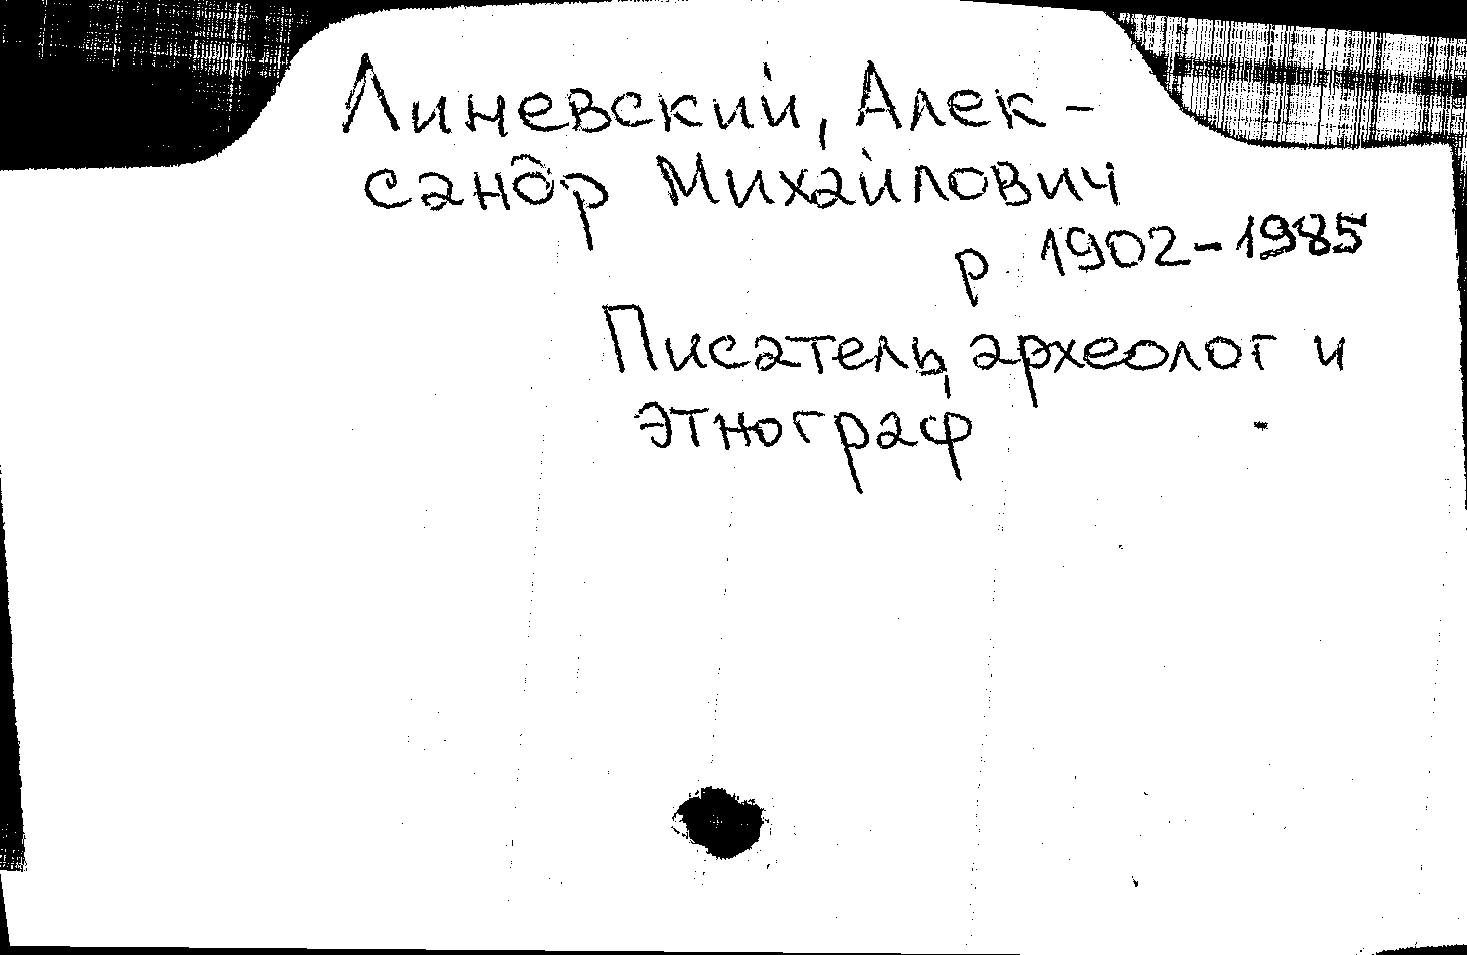 Линевский, Алек-
сандр Михайлович
р. 1902-1985
Писатель, археолог и
этнограф